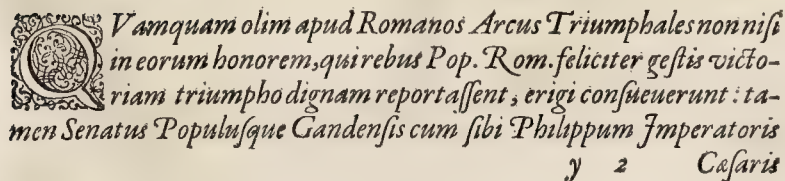 QVamquam olim apud Romanos Arcus Triumphales non niſi
in eorum honorem, qui rebus Pop. Rom. feliciter geſtis victo-
riam triumpho dignam reportaſſent, erigi conſueuerunt: ta-
men Senatus Populuſque Gandenſis cum ſibi Philippum Imperatoris
y 2 Cæſaris